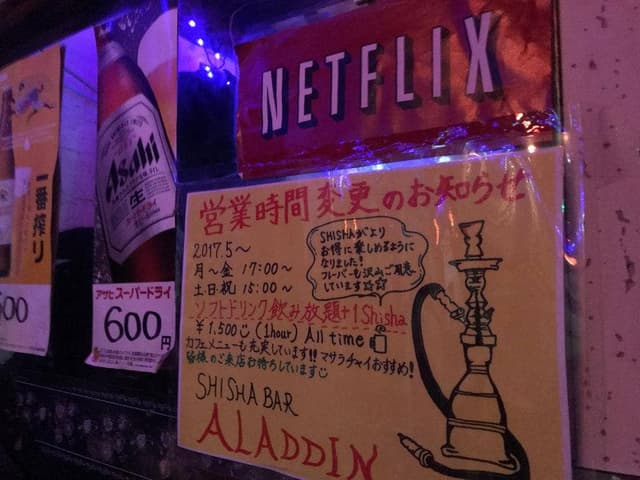 NETFLIX
一番搾り
500
Asahi
生
アサヒスーパードライ
600円
営業時間変更のお知らせ
2017.5～
月～金 17:00～
土・日・祝 15:00～
SHISHAがより
お得に楽しめるように
なりました!
フレーバーも沢山ご用意
しています☆☆
ソフトドリンク飲み放題+1Shisha
￥1,500 (1hour) All time
カフェメニューも充実しています!! マサラチャイおすすめ!
皆様のご来店お待ちしています
SHISHA BAR
ALADDIN